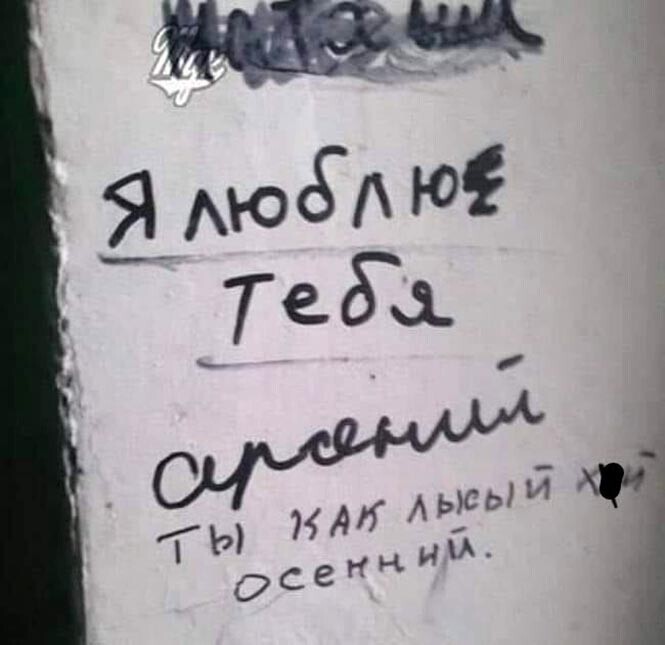 Я люблю
тебя
арсений
ты как лысый х й
осенний.